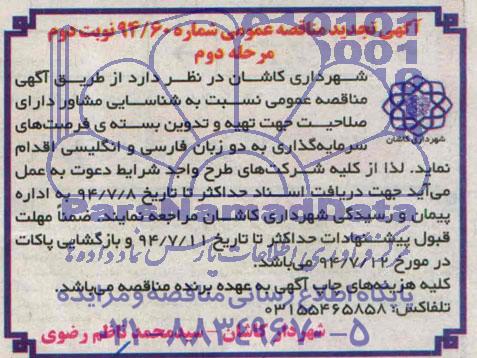 آگهی تجدید مناقصه عمومی شماره ۹۴/۶۰ نوبت دوم
مرحله دوم
شهرداری کاشان در نظر دارد از طریق آگهی
مناقصه عمومی نسبت به شناسایی مشاور دارای
صلاحیت جهت تهیه و تدوین بسته ی فرصت‌های
سرمایه‌گذاری به دو زبان فارسی و انگلیسی اقدام
شهرداری کاشان
نماید. لذا از کلیه شرکت‌های طرح واجد شرایط دعوت به عمل
می‌آید جهت دریافت اسناد حداکثر تا تاریخ ۹۴/۷/۸ به اداره
پیمان و رسیدگی شهرداری کاشان مراجعه نمایند. ضمناً مهلت
قبول پیشنهادات حداکثر تا تاریخ ۹۴/۷/۱۱ و بازگشایی پاکات
در مورخ ۹۴/۷/۱۲ می‌باشد.
کلیه هزینه‌های چاپ آگهی به عهده برنده مناقصه می‌باشد.
تلفاکس: ۰۳۱۵۵۴۶۵۸۵۸
شهردار کاشان - سیدمحمد ناظم رضوی
ParsNamadData
پایگاه اطلاع رسانی مناقصه و مزایده
۰۲۱-۸۸۳۴۹۶۷۰-۵